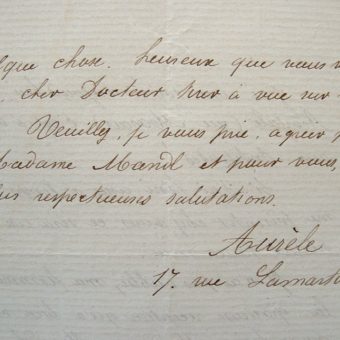 lque chose. heureux que vous
, cher Docteur tirer à vue sur
Veuillez, je vous prie, agréer p
adame Mandl et pour vous,
lus respectueuses salutations.
Aurèle
17. rue Lamart